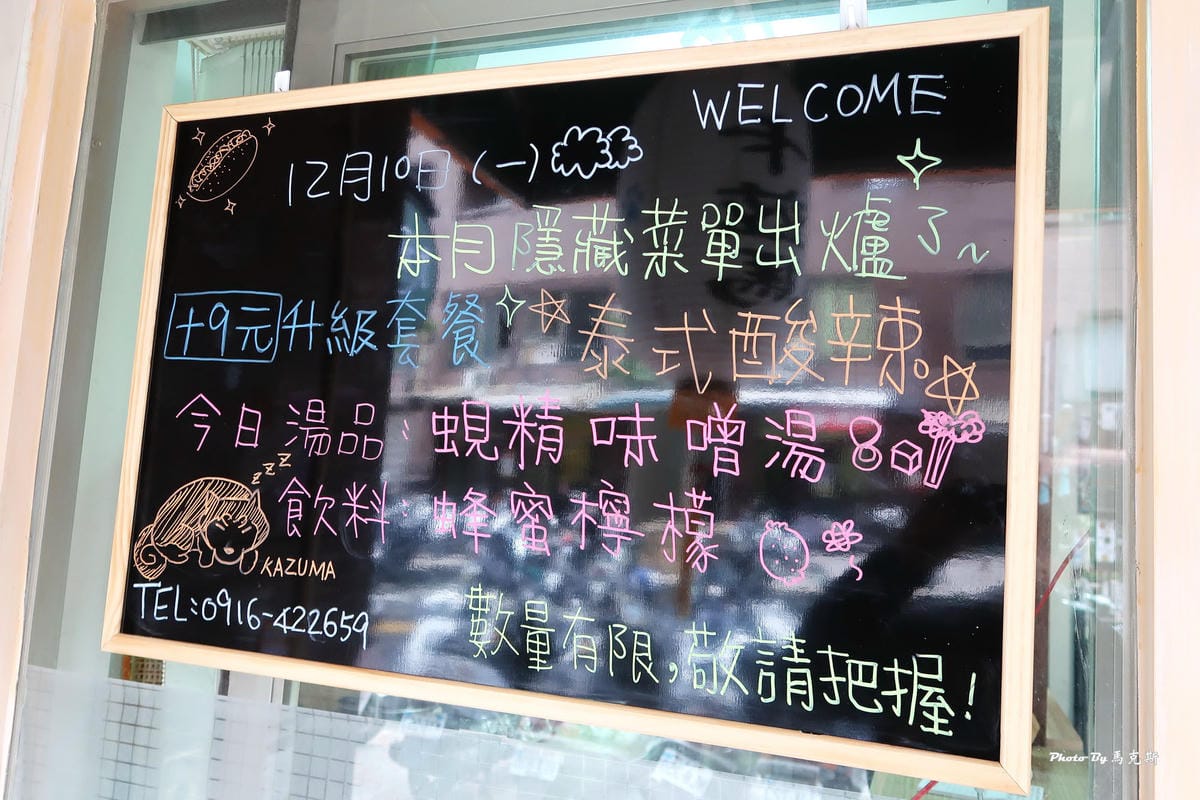 WELCOME
12月10日(一)
本月隱藏菜單出爐了~
+9元 升級套餐 泰式酸辣
今日湯品:蜆精味噌湯
zzz
飲料:蜂蜜檸檬
KAZUMA
TEL:0916-422659
數量有限,敬請把握!
Photo By 馬克斯